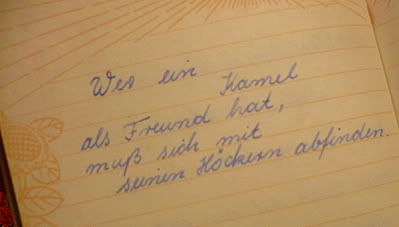 Wer ein Kamel
als Freund hat,
muß sich mit
seinen Höckern abfinden.